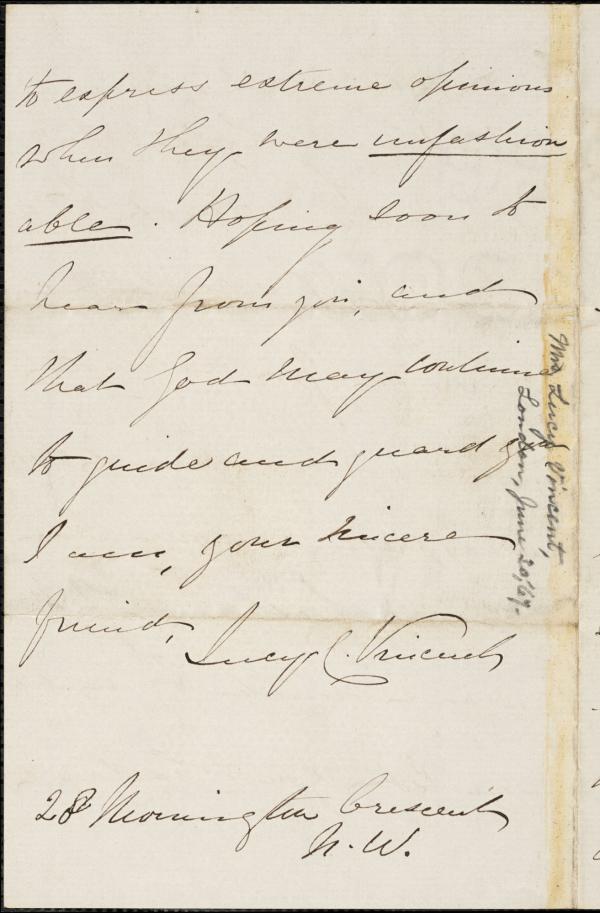 to express extreme opinions
when they were unfashion
able. Hoping soon to
hear from you, and
that God may continue
to guide and guard you
I am, your sincere
friend,
Lucy C. Vincent
28 Mornington Crescent
N. W.
Mrs Lucy Vincent,
London, June 20, '69.